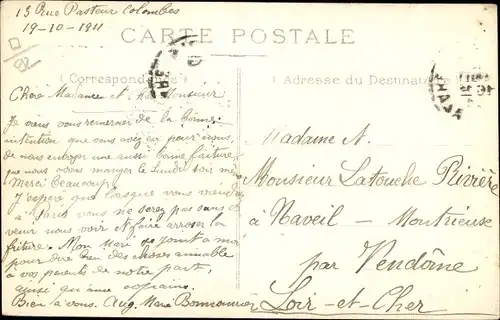 13 Rue Pasteur Colombes
19-10-1911
CARTE POSTALE
Correspondance
Adresse du Destinataire
Chère Madame et Monsieur
Je viens vous remercier de la bonne
intention que vous avez eu pour nous,
de nous envoyer une aussi bonne friture
que nous avons manger le Lundi soir même
Merci beaucoup
J'espère que lorsque vous viendrez
à Paris vous ne serez pas sans
venir nous voir et faire arroser la
friture. Mon Mari se joint a moi
pour dire bien des choses aimable
à vos parents de notre part,
ainsi qu'aux
Bien à vous. Aug. Marie
Madame A.
Monsieur Latouche Rivière
à Naveil - Montrieuse
par Vendôme
Loir-et-Cher